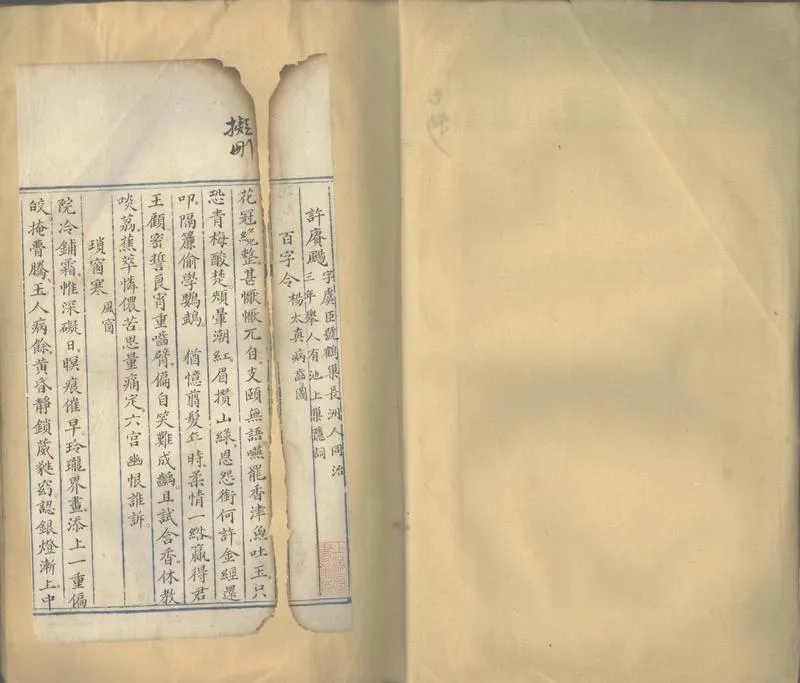 許賡颺 字虞臣號鶴巢長洲人同治
三年舉人有池上巢 詞
百字令 楊太真病齒圖
花冠 整甚懨懨兀自支頤無語嚥罷香津魚吐玉只
恐青梅酸楚頰暈潮紅眉攢山綠恩怨銜何許金經還
叩隔簾偷學鸚鵡 猶憶翦髮年時柔情一綹贏得君
王顧密誓良宵重嚙臂偏自笑難成齲且試含香休教
啖荔蕉萃憐儂苦思量痛定六宮幽恨誰訴
瑣窗寒 風窗
院冷鋪霜惟深礙日暝痕催早玲瓏界畫添上一重偏
皎掩瞢騰玉人病餘黃昏靜鎖葳蕤窈認銀燈漸上中
擬刪